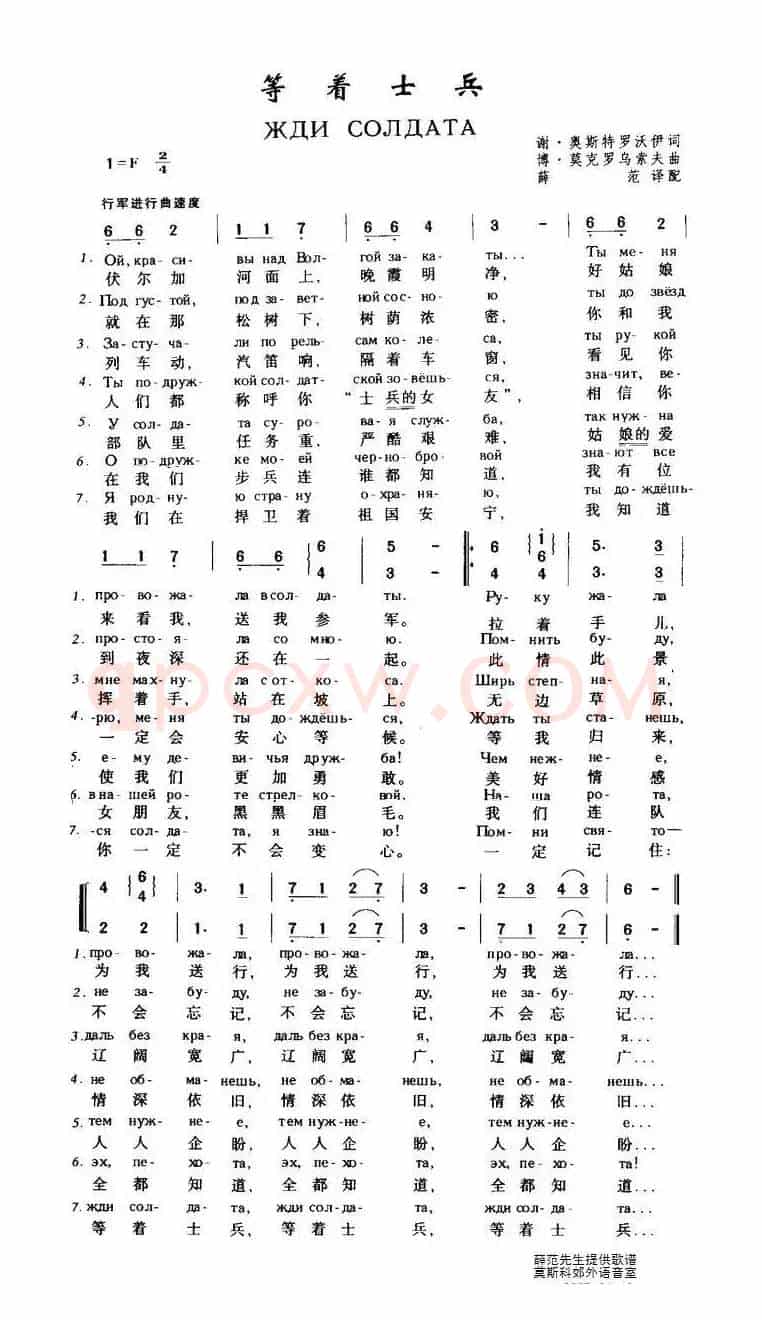 等着士兵
ЖДИ СОЛДАТА
1=F 2/4
谢·奥斯特罗沃伊词
博·莫克罗乌索夫曲
薛 范 译配
行军进行曲速度
6 6 2 | 1 1 7 | 6 6 4 | 3 - | 6 6 2 |
1. Ой, кра- си- вы над Вол- гой за- ка- ты... Ты ме- ня
伏尔加 河面上, 晚霞明 净, 好姑娘
2. Под гус- той, под за- вет- ной сос- но- ю ты до звёзд
就在那 松树下, 树荫浓 密, 你和我
3. За- сту- ча- ли по рель- сам ко- ле- са, ты ру- кой
列车动, 汽笛响, 隔着车 窗, 看见你
4. Ты по- друж- кой сол- дат- ской зо- вёшь- ся, зна- чит, ве-
人们都 称呼你 “士兵的女 友”, 相信你
5. У сол- да- та су- ро- ва- я служ- ба, так нуж- на
部队里 任务重, 严酷艰 难, 姑娘的爱
6. О по- друж- ке мо- ей чер- но- бро- вой зна- ют все
在我们 步兵连 谁都知 道, 我有位
7. Я род- ну- ю стра- ну о- хра- ня- ю, ты до- ждёшь-
我们在 捍卫着 祖国安 宁, 我知道
1 1 7 | 6 6 6 4 | 5 - 3 - | 6 4 1 6 4 | 5. 3 3. 3 |
1. про- во- жа- ла в сол- да- ты. Ру- ку жа- ла
来看我, 送我参 军。 拉着手儿,
2. про- сто- я- ла со мно- ю. Пом- нить бу- ду,
到夜深 还在一 起。 此情此景
3. мне мах- ну- ла с от- ко- са. Ширь степ- на- я,
挥着手, 站在坡 上。 无边草原,
4. -рю, ме- ня ты до- ждёшь- ся, Ждать ты ста- нешь,
一定会 安心等 候。 等我归来,
5. е- му де- ви- чья друж- ба! Чем неж- не- е,
使我们 更加勇 敢。 美好情感
6. в на- шей ро- те стрел- ко- вой. На- ша ро- та,
女朋友, 黑黑眉 毛。 我们连队
7. -ся сол- да- та, я зна- ю! Пом- ни свя- то—
你一定 不会变 心。 一定记住:
4 6 4 | 3. 1 | 7 1 2 7 | 3 - | 2 3 4 3 | 6 -
2 2 | 1. 1 | 7 1 2 7 | 3 - | 7 1 2 7 | 6 -
1. про- во- жа- ла, про- во- жа- ла, про- во- жа- ла...
为我送行, 为我送 行, 为我送 行...
2. не за- бу- ду, не за- бу- ду, не за- бу- ду...
不会忘记, 不会忘 记, 不会忘 记...
3. даль без кра- я, даль без кра- я, даль без кра- я...
辽阔宽广, 辽阔宽 广, 辽阔宽 广...
4. не об- ма- нешь, не об- ма- нешь, не об- ма- нешь...
情深依旧, 情深依 旧, 情深依 旧...
5. тем нуж- не- е, тем нуж- не- е, тем нуж- не- е...
人人企盼, 人人企 盼, 人人企 盼...
6. эх, пе- хо- та, эх, пе- хо- та, эх, пе- хо- та!
全都知道, 全都知 道, 全都知 道...
7. жди сол- да- та, жди сол- да- та, жди сол- да- та...
等着士兵, 等着士 兵, 等着士 兵...
薛范先生提供歌谱
莫斯科郊外语音室
qpcxw.com